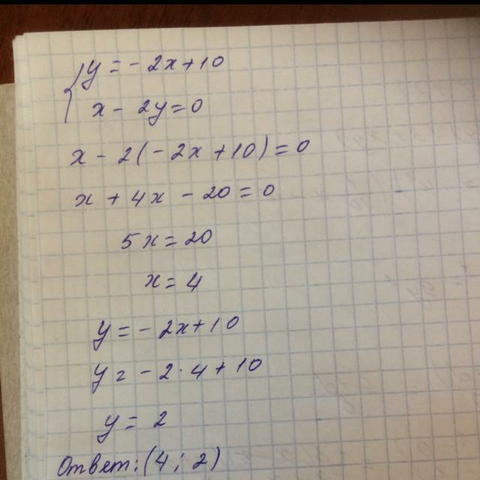 { y = - 2x + 10
x - 2y = 0
x - 2 ( - 2x + 10 ) = 0
x + 4x - 20 = 0
5x = 20
x = 4
y = - 2x + 10
y = - 2 · 4 + 10
y = 2
Ответ: (4 ; 2)